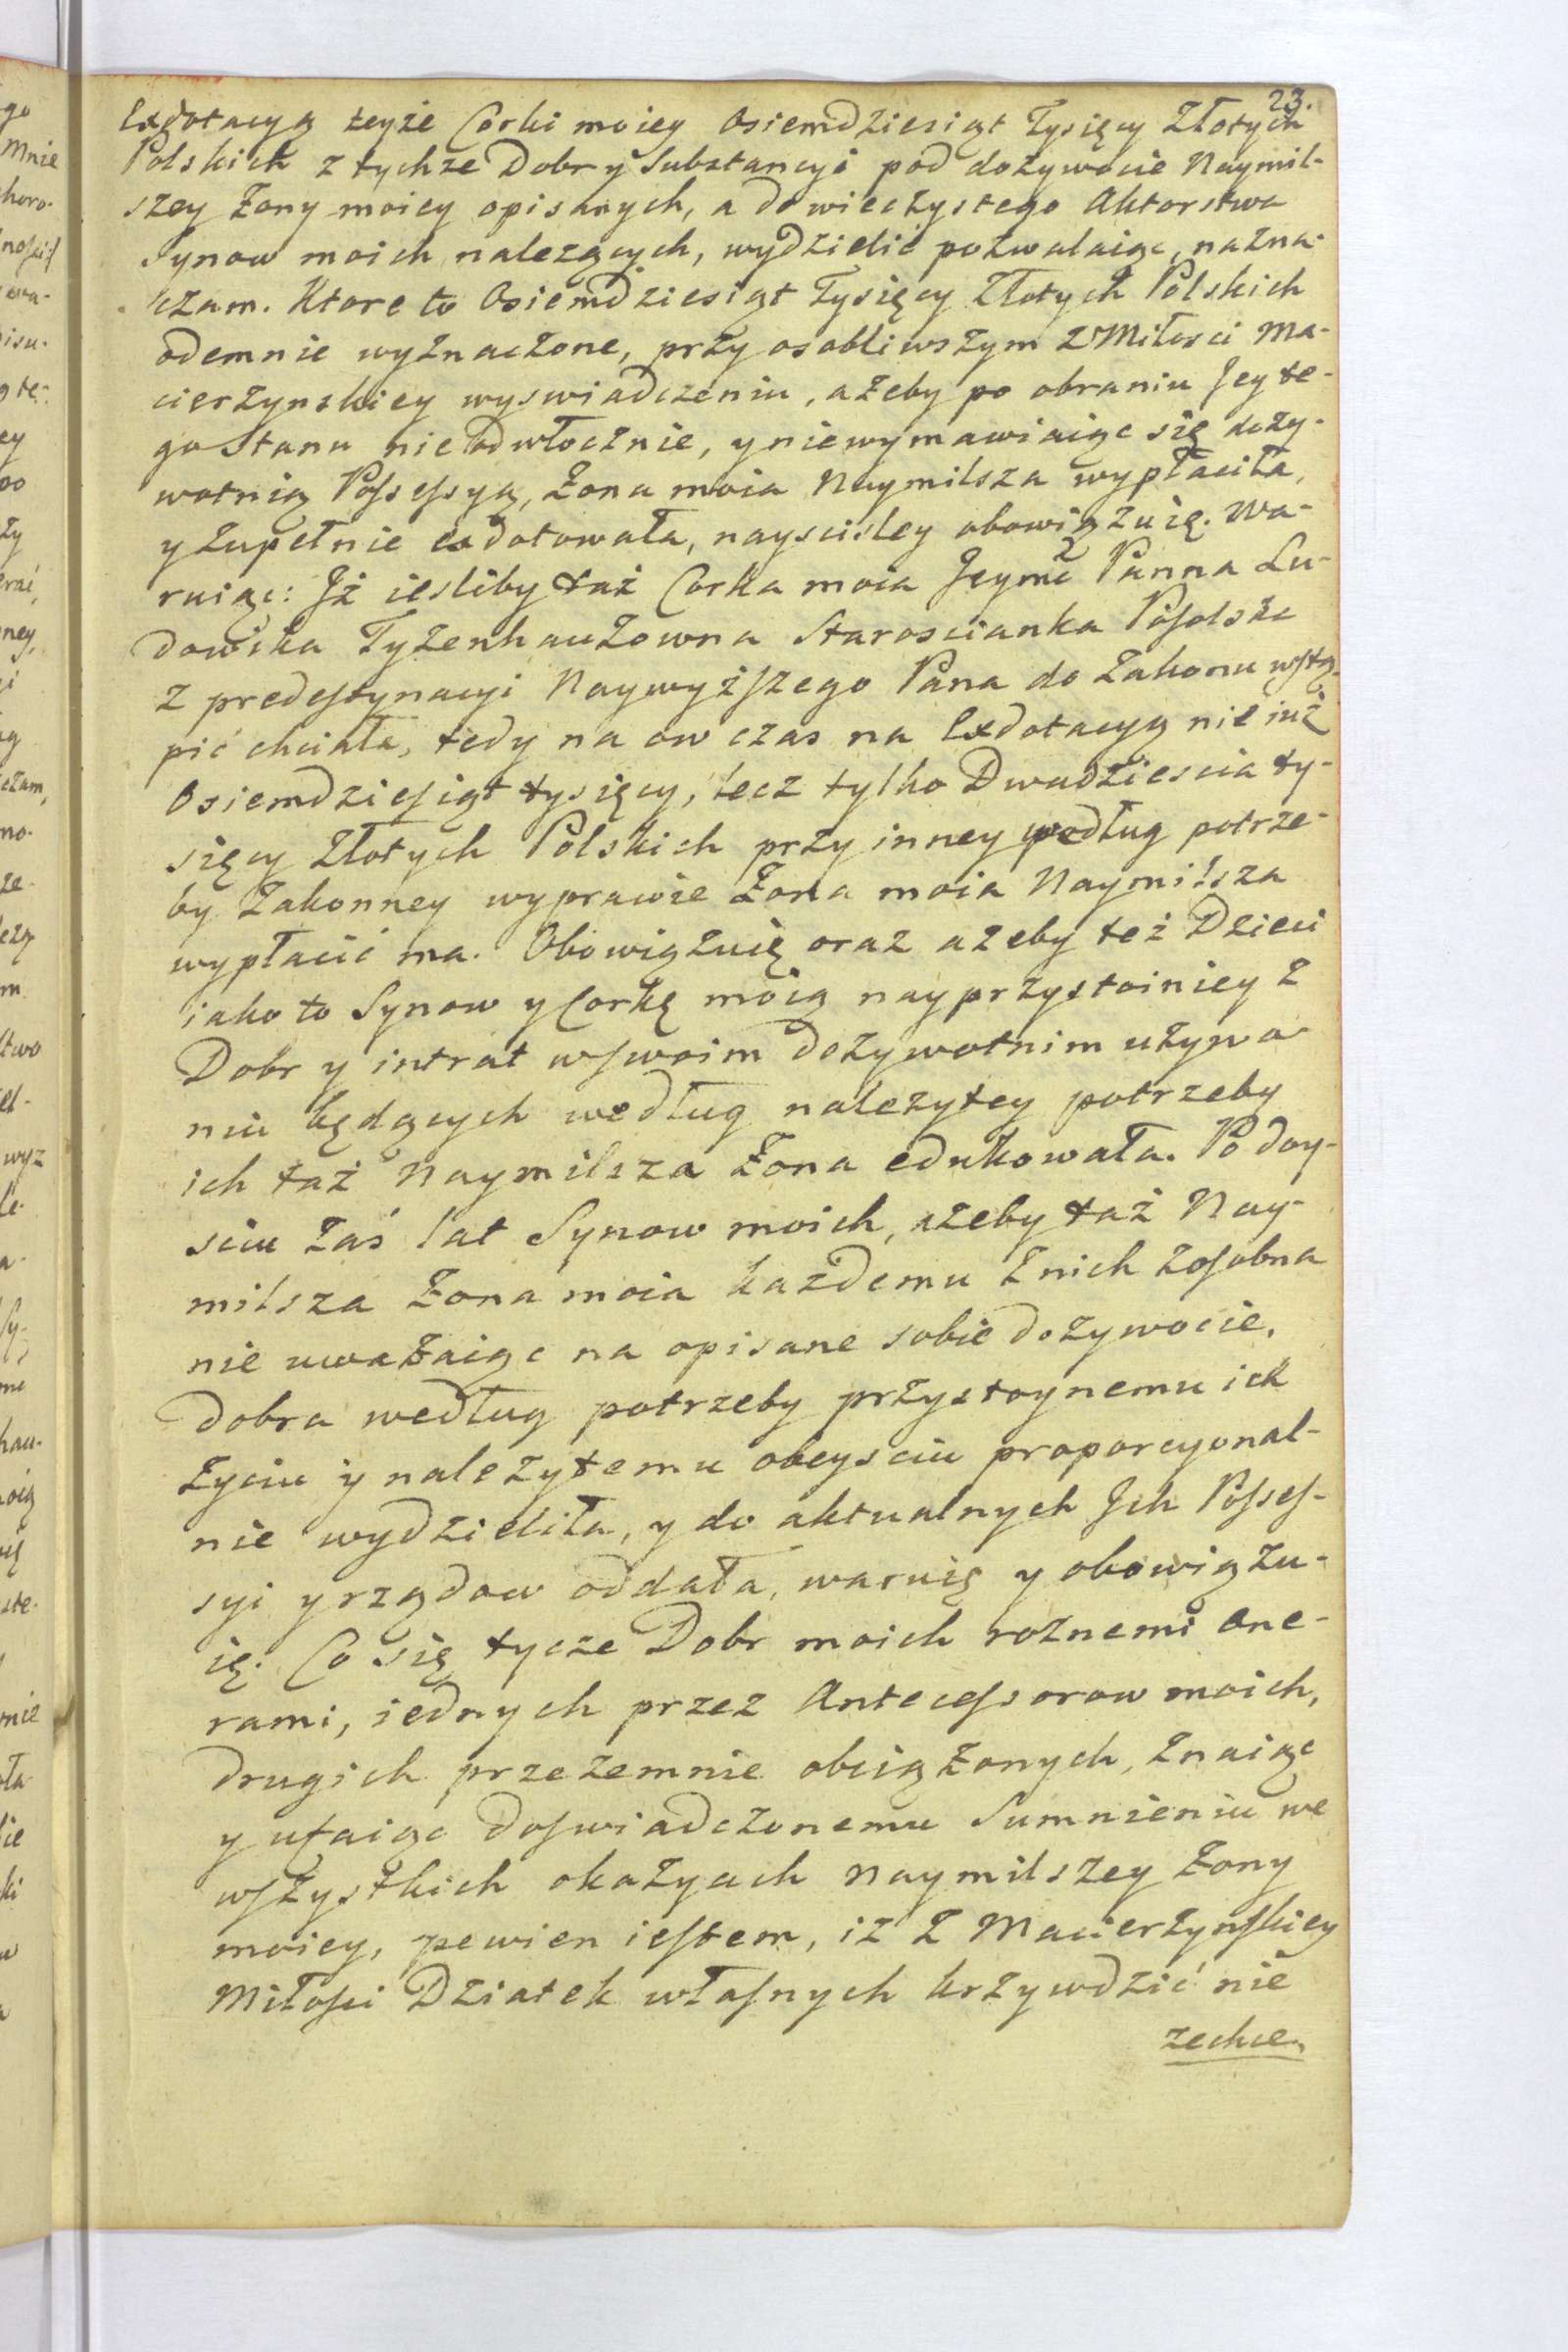 23.
Exdotacyą teyże Corki moiey Osiemdziesiąt Tysięcy Złotych
Polskich z tychże Dobr y Substancyi pod dożywocie Naymil-
szey Żony moiey opisanych, a do wieczystego Aktorstwa
Synow moich należących, wydzielić pozwalaiąc, nazna-
czam. Ktore to Osiemdziesiąt Tysięcy Złotych Polskich
odemnie wyznaczone, przy osobliwszym z Miłosci Ma-
cierzynskiey wyswiadczeniu, ażeby po obraniu Jey te-
go Stanu nieodwłocznie, y niewymawiaiąc się doży-
wotnią Possessyą, Żona moia Naymilsza wypłaciła,
y zupełnie exdotowała, nayscisley obowiązuię. Wa-
ruiąc: Jż iesliby taż Corka moia Jeymć Panna Lu-
dowika Tyzenhauzowna Staroscianka Posolska
z predestynacyi Naywyższego Pana do Zakonu wstą-
pić chciała, tedy na ow czas na Exdotacyą nie iuż
Osiemdziesiąt tysięcy, lecz tylko Dwadziescia ty-
sięcy Złotych Polskich przy inney według potrze-
by Zakonney wyprawie Żona moia Naymilsza
wypłacić ma. Obowiązuię oraz ażeby też Dzieci
iako to Synow y Corkę moią nayprzystoiniey z
Dobr y intrat w swoim dożywotnim używa
niu będących według należytey potrzeby
ich taż Naymilsza Żona edukowała. Po doy-
sciu zaś lat Synow moich, ażeby taż Nay-
milsza Żona moia każdemu z nich zosobna
nie uważaiąc na opisane sobie dożywocie,
Dobra według potrzeby przystoynemu ich
życiu y należytemu obeysciu proporcyonal-
nie wydzieliła, y do aktualnych Jch Posses-
syi y rządow oddała, waruię y obowiązu-
ię. Co się tycze Dobr moich roznemi one-
rami, iednych przez Antecessorow moich,
drugich przezemnie obciążonych, znaiąc
y ufaiąc doswiadczonemu Sumnieniu we
wszystkich okazyach Naymilszey Żony
moiey, pewien iestem, iż z Macierzynskiey
Miłosci Dziatek własnych krzywdzić nie
zechce.